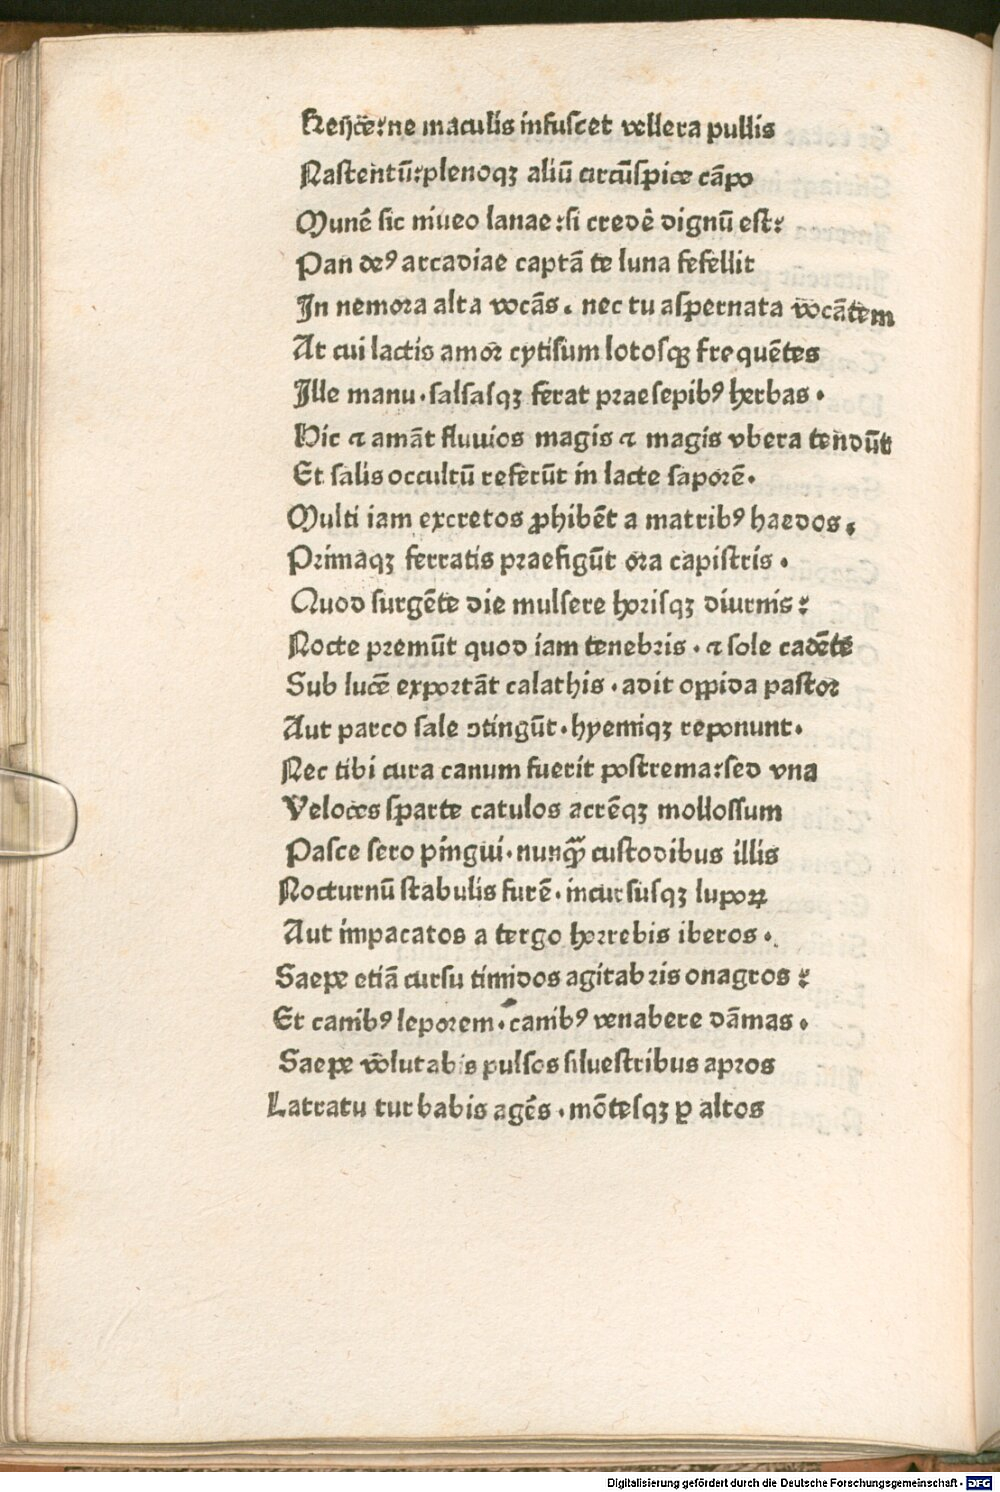 Reijce: ne maculis infuscet vellera pullis
Nascentū: plenoqꝫ aliū circūspice cāpo
Munē sic niueo lanae: si credē dignū est:
Pan deꝰ arcadiae captā te luna fefellit
In nemora alta vocās. nec tu aspernata vocātem
At cui lactis amor cytisum lotosqꝫ frequētes
Ille manu. salsasqꝫ ferat praesepibꝰ herbas.
Hic ⁊ amāt fluuios magis ⁊ magis vbera tendūt
Et salis occultū referūt in lacte saporē.
Multi iam excretos ꝓhibēt a matribꝰ haedos.
Primaqꝫ ferratis praefigūt ora capistris.
Quod surgēte die mulsere horisqꝫ diurnis:
Nocte premūt quod iam tenebris. ⁊ sole cadēte
Sub lucē exportāt calathis. adit oppida pastor
Aut parco sale ↄtingūt. hyemiqꝫ reponunt.
Nec tibi cura canum fuerit postrema: sed vna
Veloces sparte catulos acrēqꝫ mollossum
Pasce sero pingui. nunqᷓ custodibus illis
Nocturnū stabulis furē. incursusqꝫ lupoꝝ
Aut impacatos a tergo horrebis iberos.
Saepe etiā cursu timidos agitabris onagros:
Et canibꝰ leporem. canibꝰ venabere dāmas.
Saepe volutabis pulsos siluestribus apros
Latratu turbabis agēs. mōtesqꝫ ꝑ altos
Digitalisierung gefördert durch die Deutsche Forschungsgemeinschaft - DFG